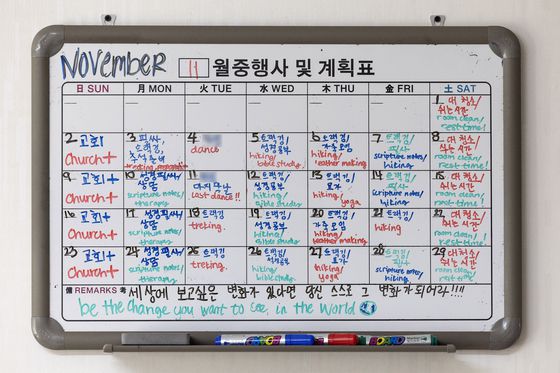 November 11 월중행사 및 계획표
日 SUN 月 MON 火 TUE 水 WED 木 THU 金 FRI 土 SAT
1 대청소/
쉬는시간
room clean/
rest time!
2 교회+
church+
3 필사/
4
dance
5 트래킹/
성경공부
hiking/
bible study
6 트래킹/
가죽공예
hiking/
leather making
7 트래킹/
필사
scripture notes/
hiking
8 대청소/
쉬는시간
room clean/
rest time!
9 교회+
church+
10 성경필사/
상담
scripture notes/
therapy
11
마지막날
last dance!!
12 트래킹/
성경공부
hiking/
bible study
13 트래킹/
요가
hiking/
yoga
14 트래킹/
필사
scripture notes/
hiking
15 대청소/
쉬는시간
room clean/
rest time!
16 교회+
church+
17 성경필사/
상담
scripture notes/
therapy
18 트래킹
treking.
19 트래킹/
성경공부
hiking/
bible study
20 트래킹/
가죽공예
hiking/
leather making
21 트래킹
hiking
22 대청소/
쉬는시간
room clean/
rest-time!
23 교회+
church+
24 성경필사/
상담
scripture notes/
therapy
25 트래킹
treking.
26 트래킹/
성경공부
hiking/
bible study
27 트래킹/
요가
hiking/
yoga
28 트래킹/
필사
scripture notes/
hiking
29 대청소/
쉬는시간
room clean/
rest time!
REMARKS 세상에 보고싶은 변화가 있다면 당신 스스로 그 변화가 되어라!!!!
be the change you want to see, in the world
BOARD